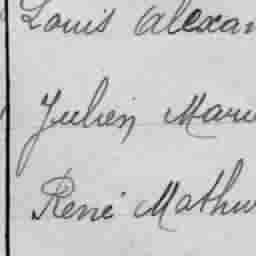 Louis Alexan
Julien Marie
René Mathu